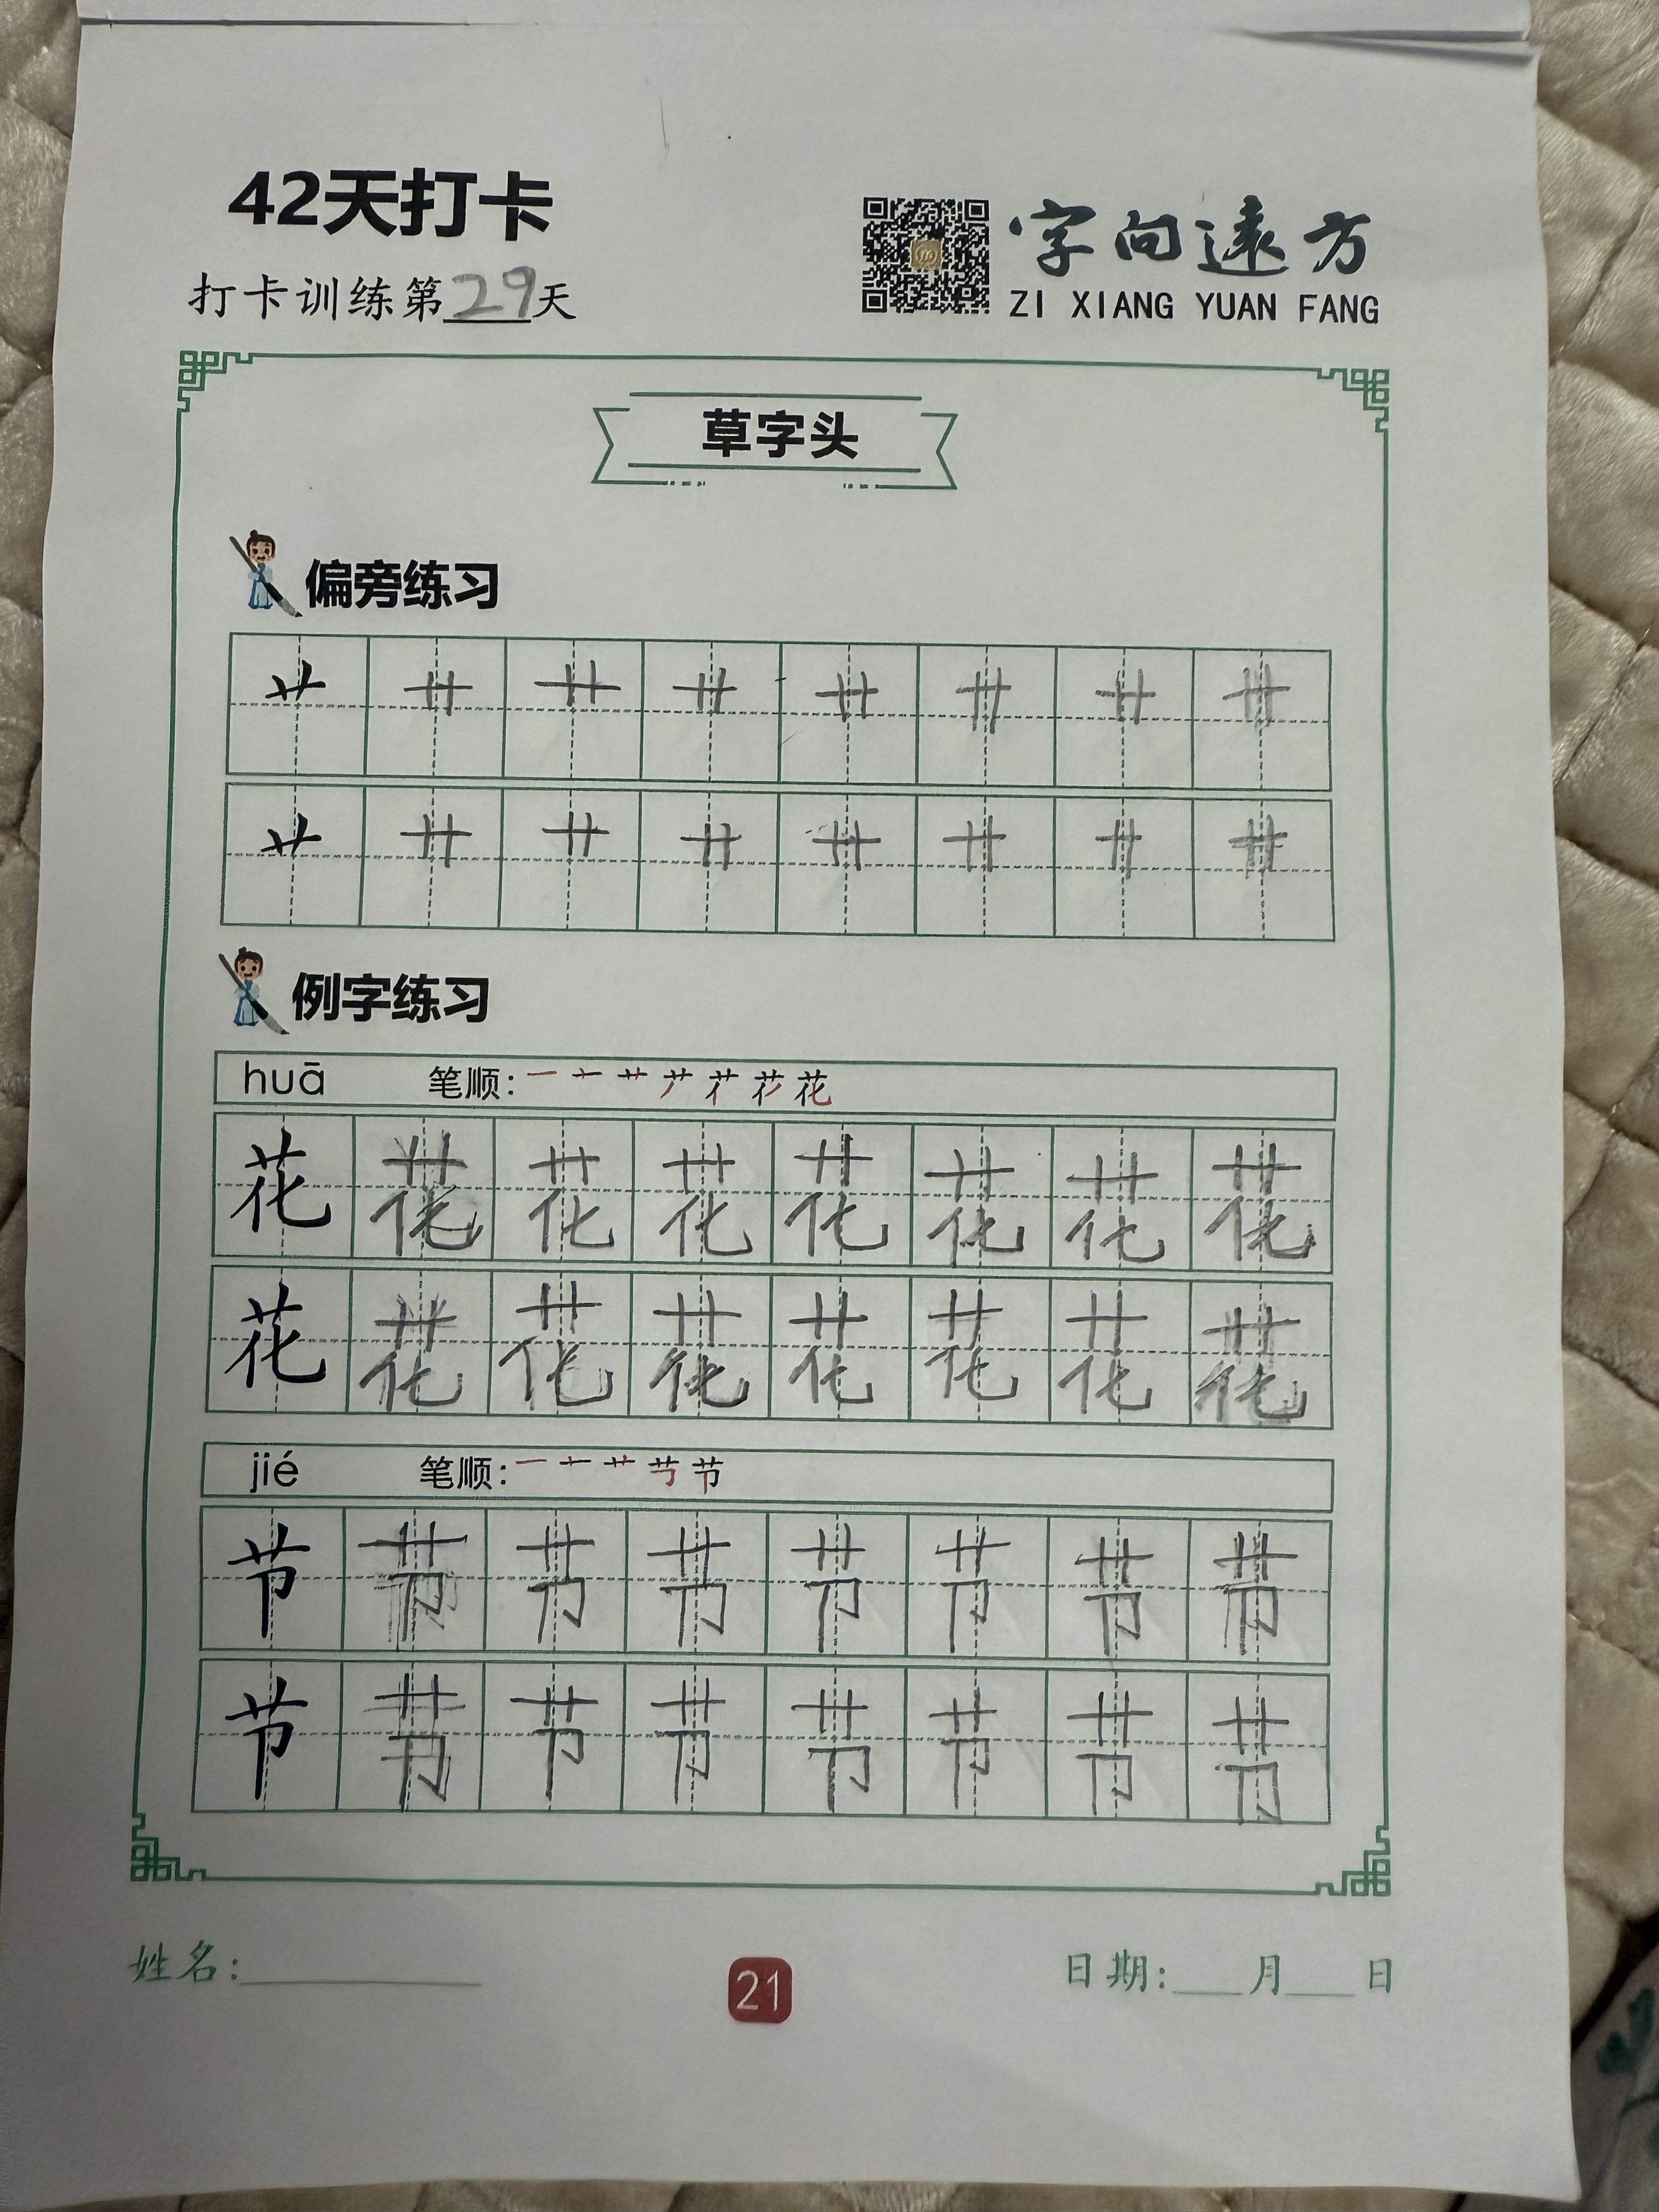 42天打卡
字向遠方
打卡训练第29天
ZI XIANG YUAN FANG
草字头
偏旁练习
艹 艹 艹 艹 艹 艹 艹 艹
艹 艹 艹 艹 艹 艹 艹 艹
例字练习
huā 笔顺:
花 花 花 花 花 花 花 花
花 花 花 花 花 花 花 花
jié 笔顺:
节 节 节 节 节 节 节 节
节 节 节 节 节 节 节 节
姓名: 21 日期: 月 日